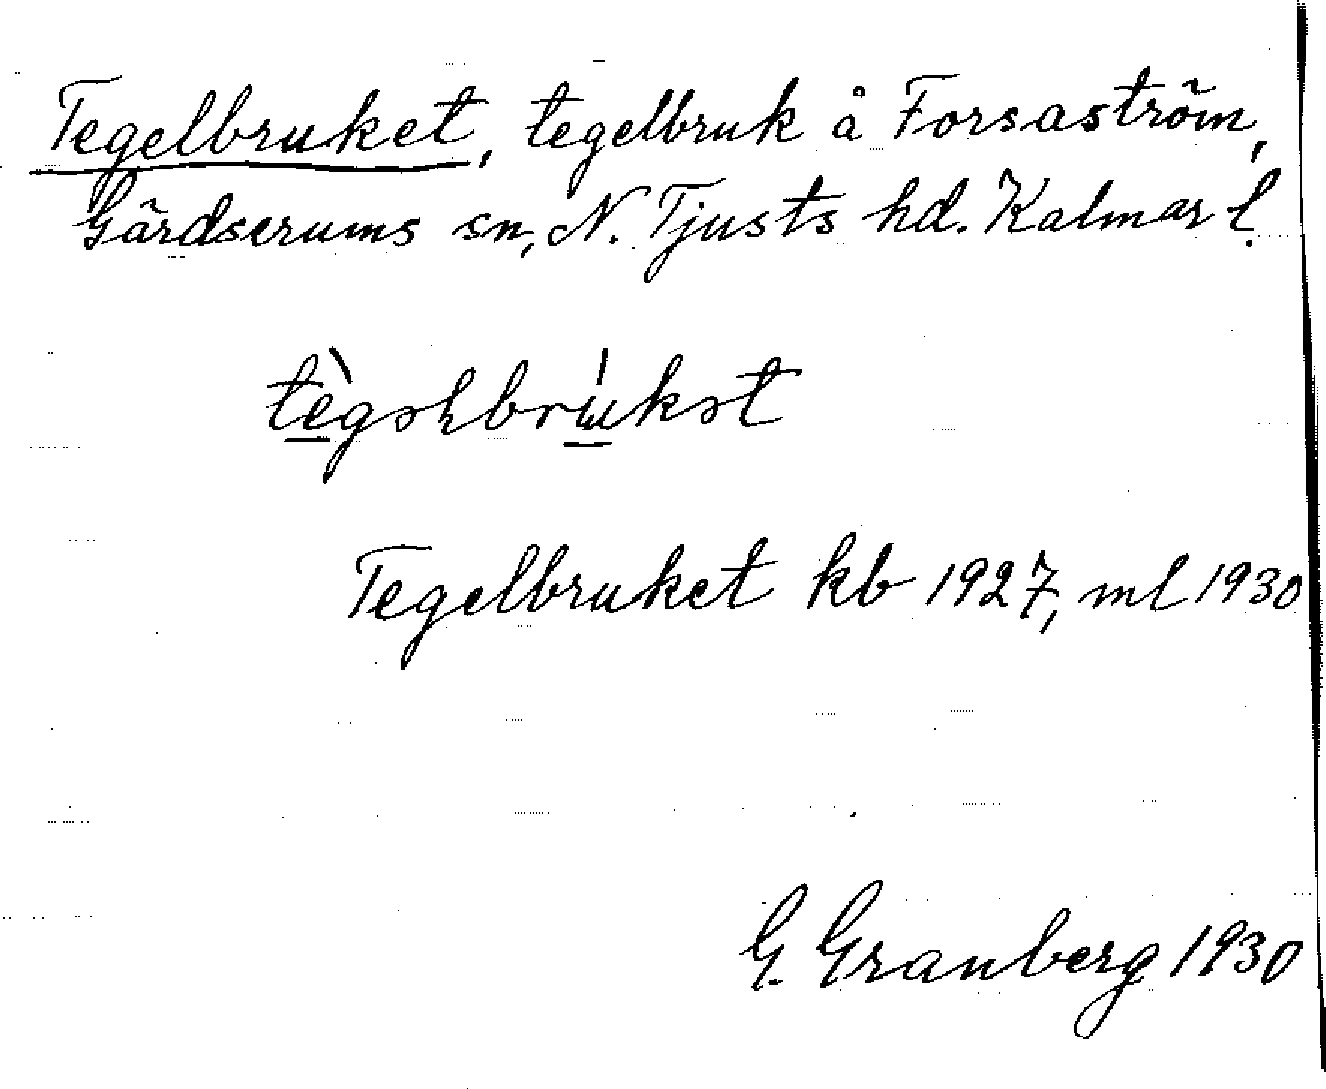 Tegelbruket, tegelbruk å Forsaström,
Gärdserums sn, N. Tjusts hd. Kalmar l.
Tegelbruket kb 1927, ml 1930
G. Granberg 1930